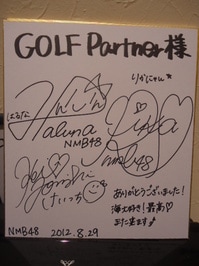 GOLF Partner様
りかにゃん★
はるな
Haluna
NMB48
Rika
NMB48
けいっち
ありがとうございました!
海大好き!最高♡
また来ます♪
NMB48 2012.8.29